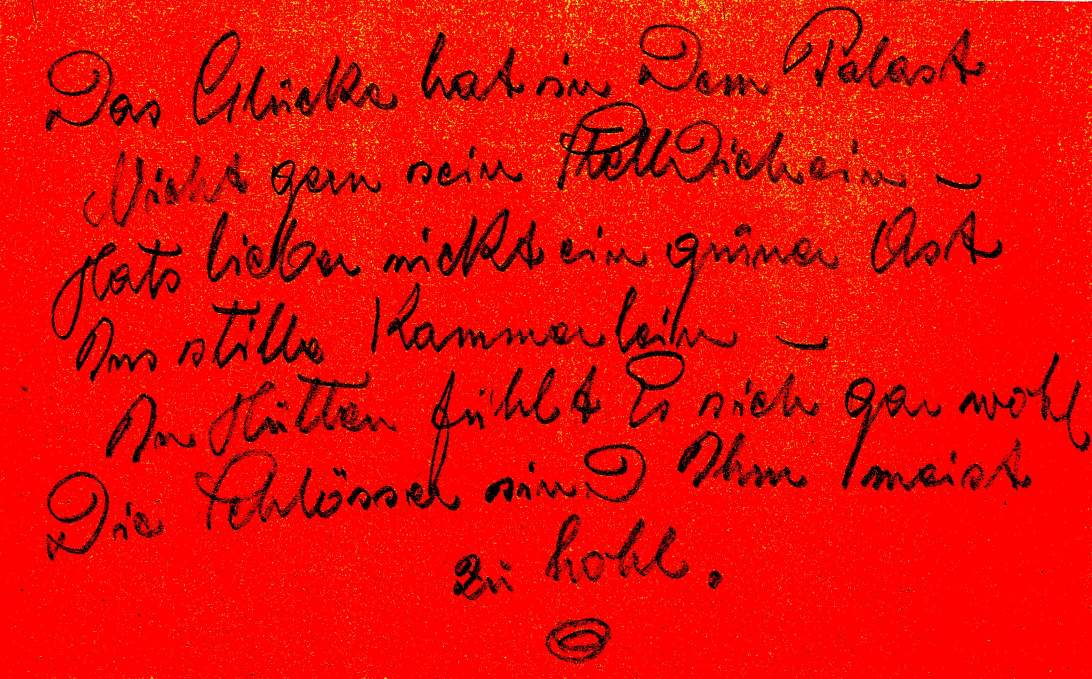 Das Glücke hat in Dem Palast
Nicht gern sein StellDichein –
Hats lieber nickt ein grüner Ast
Ins stille Kammerlein –
In Hütten fühlt Es sich gar wohl
Die Schlösser sind Ihm meist
zu hohl.